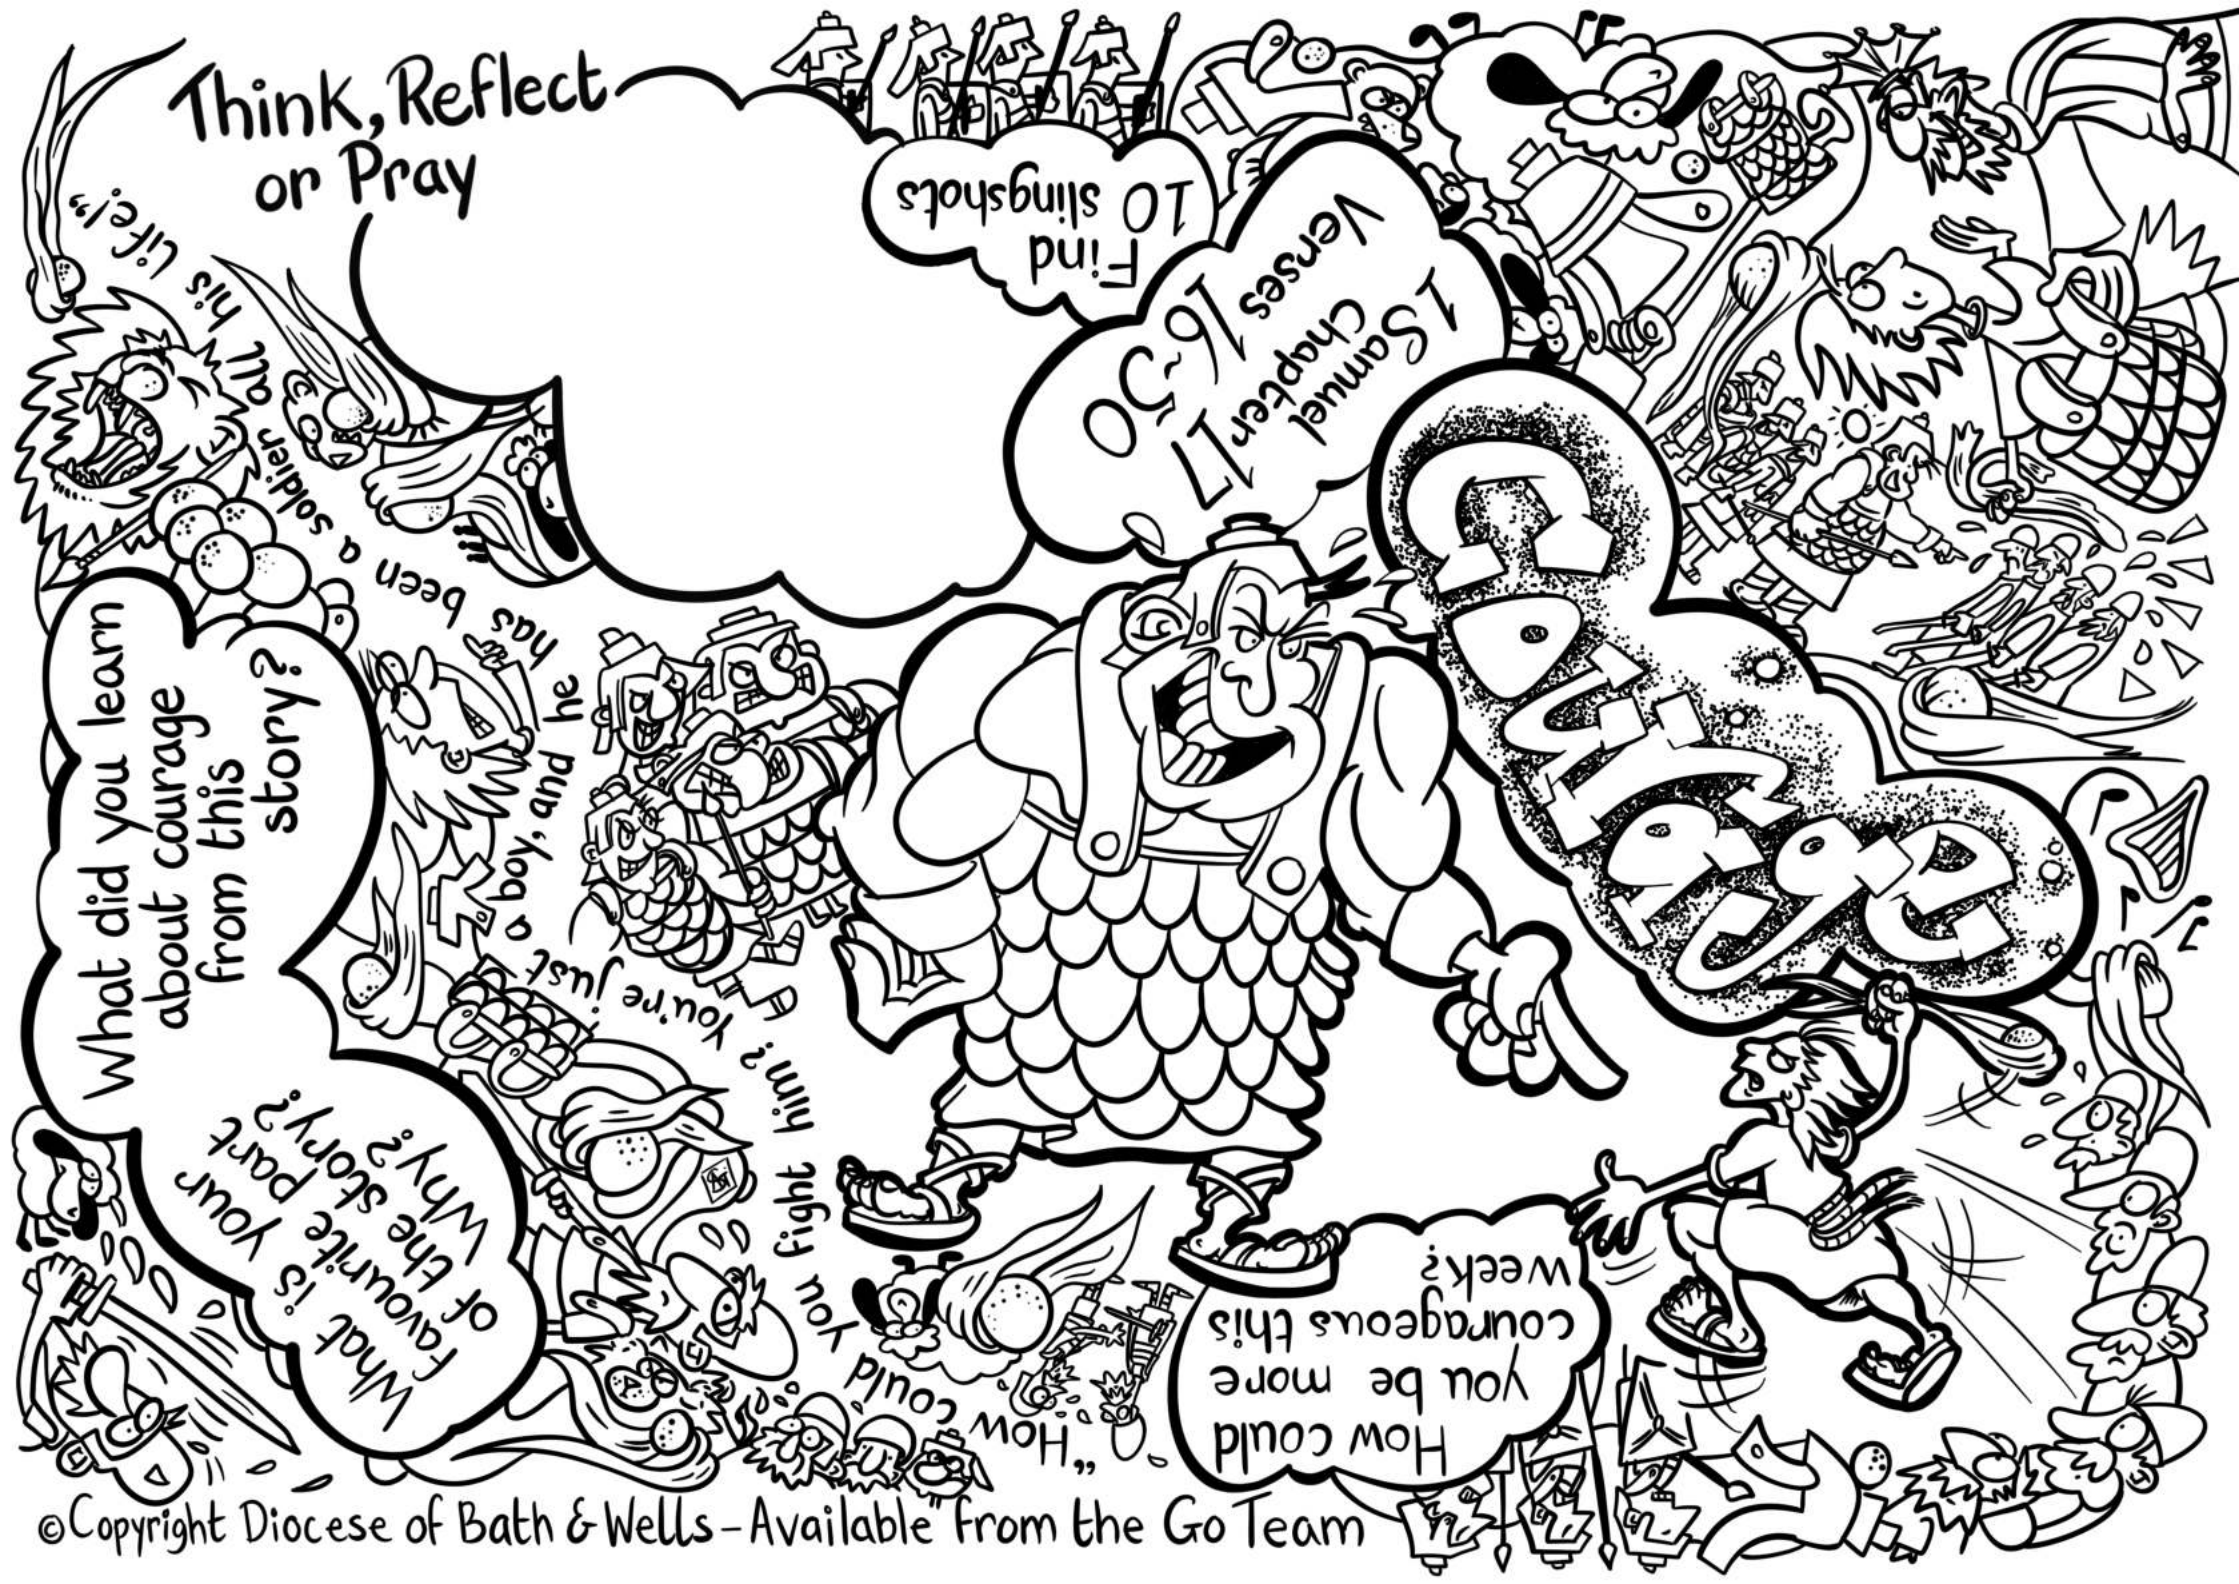 Think, Reflect
or Pray
Find
10 slingshots
1 Samuel
Chapter
17
Verses 16-50
Courage
What did you learn
about courage
from this
story?
What is your
favourite part
of the story?
Why?
"How could you fight him? You're just a boy, and he has been a soldier all his life!"
How could
you be more
courageous this
week?
©Copyright Diocese of Bath & Wells - Available from the Go Team